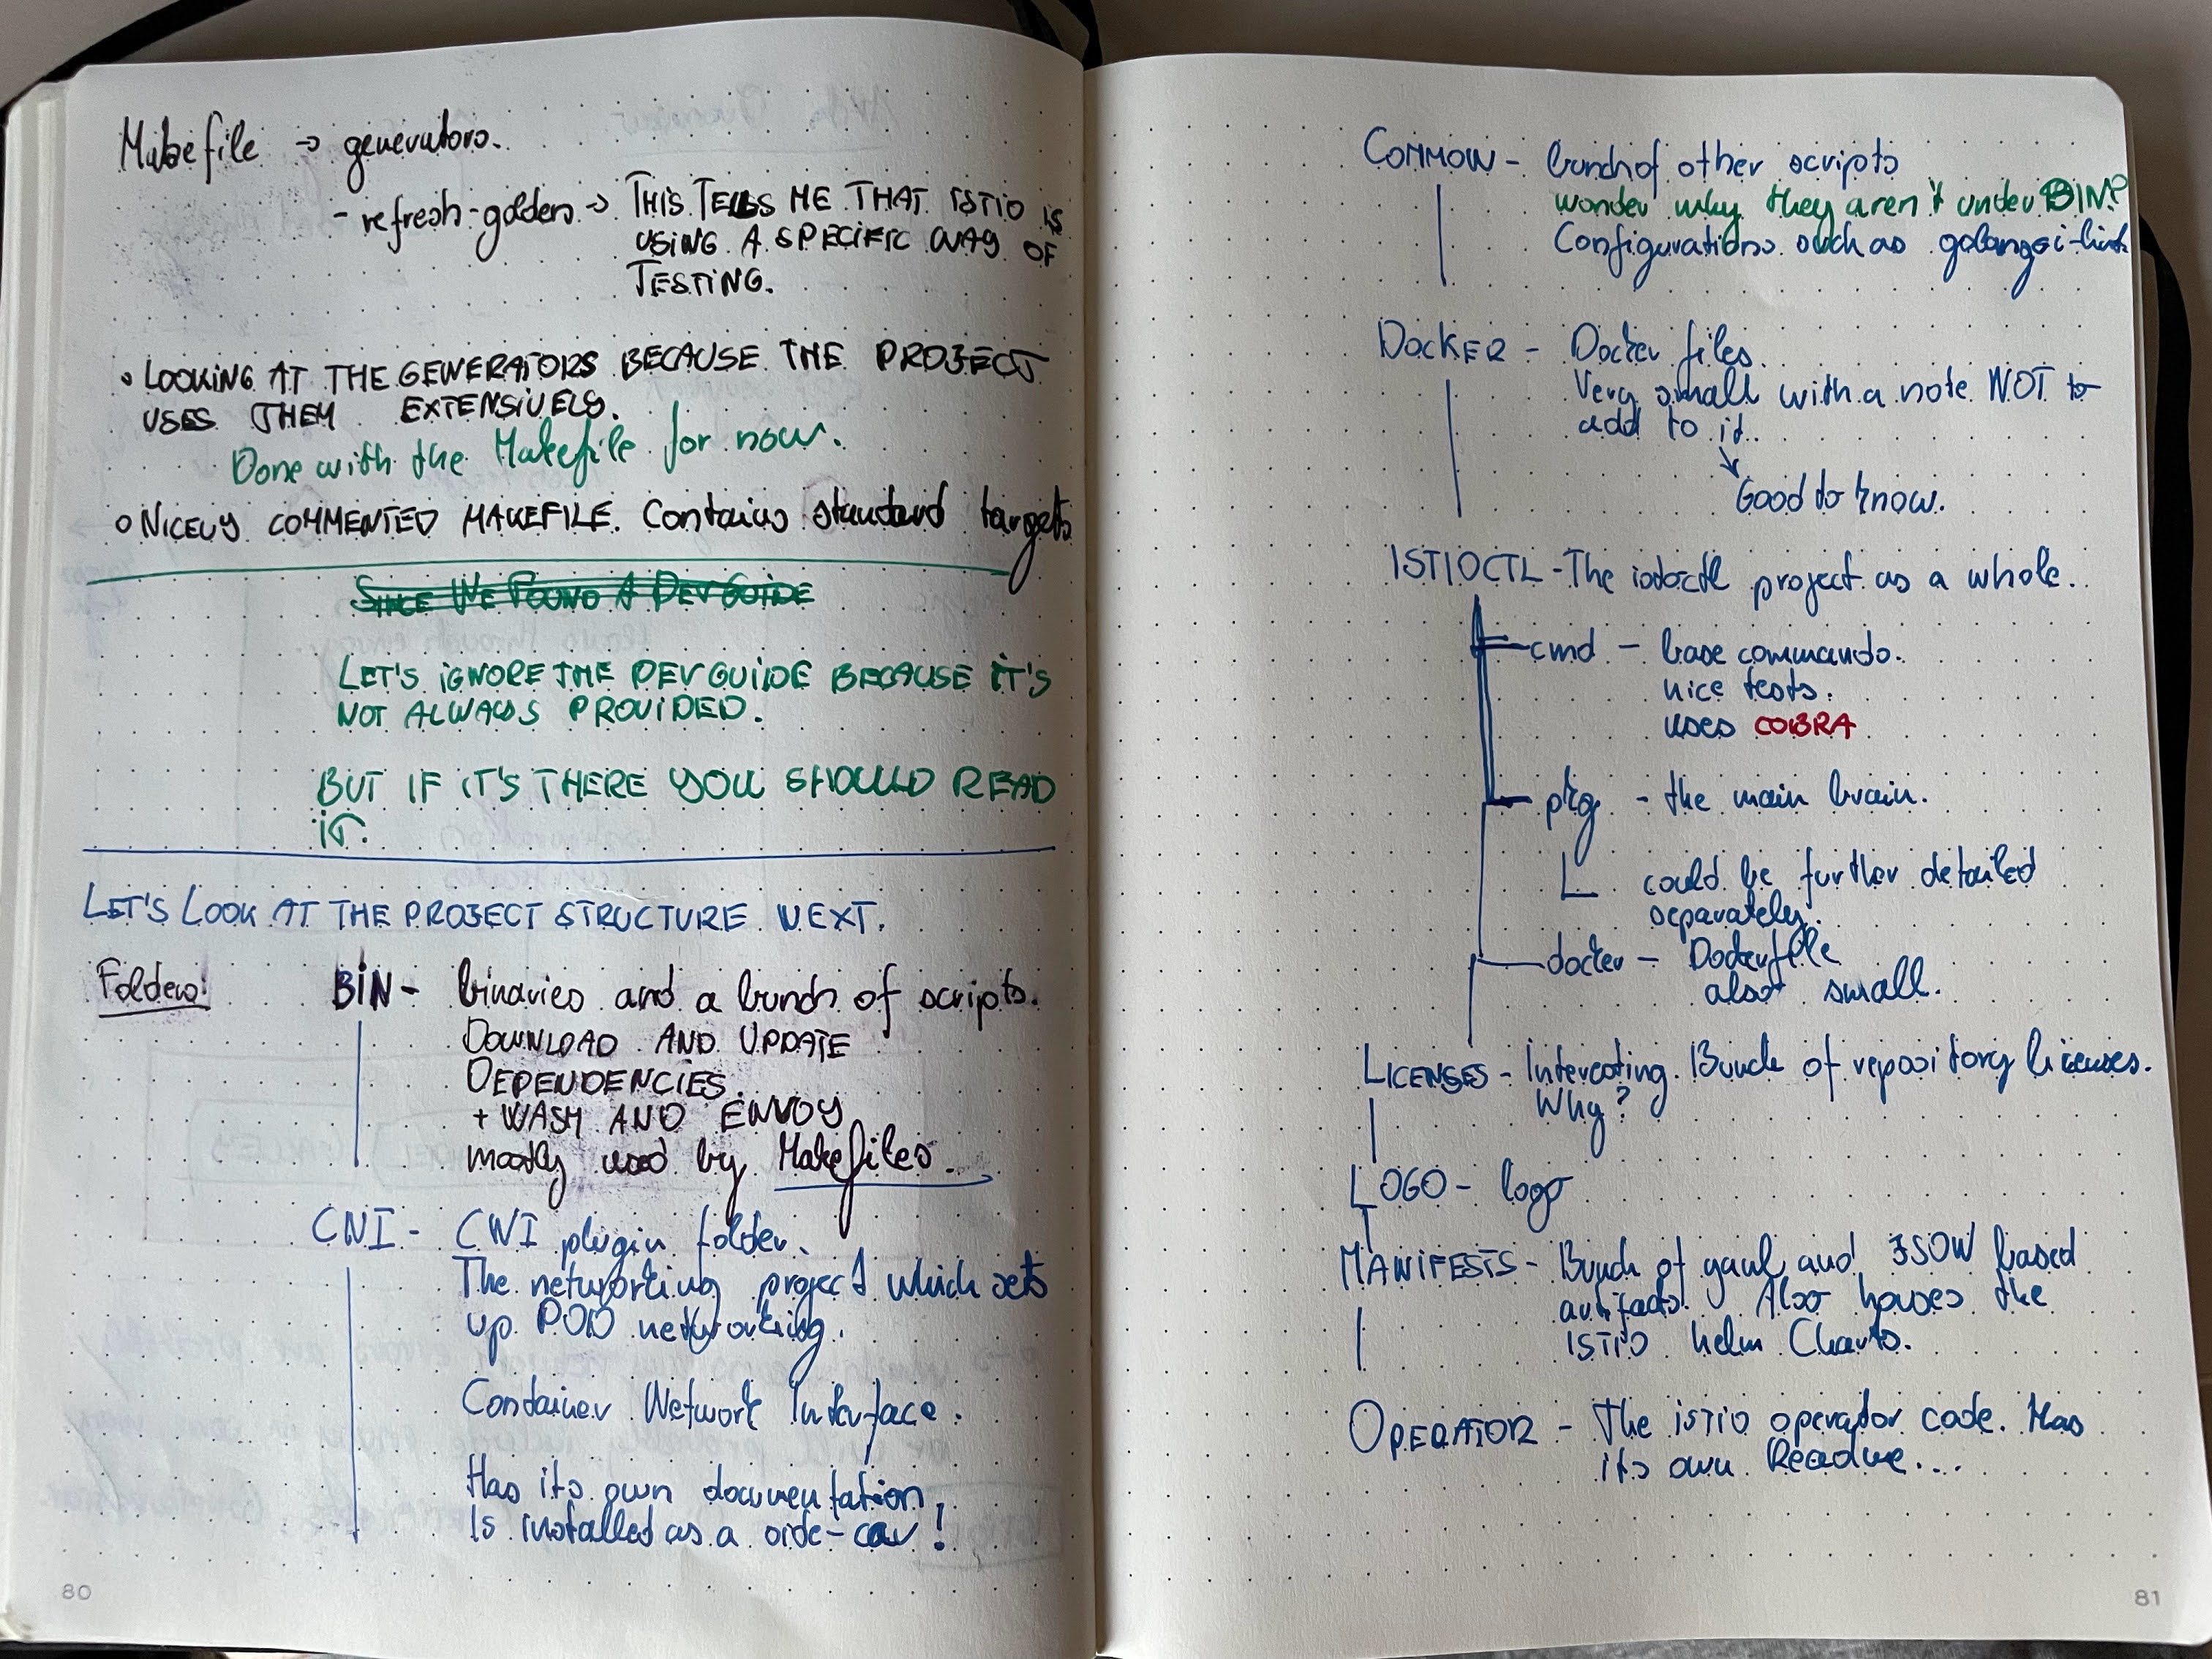 Makefile → generators.
- refresh-golden → THIS TELLS ME THAT ISTIO IS
USING A SPECIFIC WAY OF
TESTING.
• LOOKING AT THE GENERATORS BECAUSE THE PROJECT
USES THEM EXTENSIVELY.
Done with the Makefile for now.
○ NICELY COMMENTED MAKEFILE. Contains standard targets
SINCE WE FOUND A DEV GUIDE
LET'S IGNORE THE DEV GUIDE BECAUSE IT'S
NOT ALWAYS PROVIDED.
BUT IF IT'S THERE YOU SHOULD READ
IT.
LET'S LOOK AT THE PROJECT STRUCTURE NEXT.
Folders:
BIN - binaries and a bunch of scripts.
DOWNLOAD AND UPDATE
DEPENDENCIES
+ WASM AND ENVOY
mostly used by Makefiles.
CNI - CNI plugin folder.
The networking project which sets
up POD networking.
Container Network Interface.
Has its own documentation
Is installed as a side-car!
80
COMMON - bunch of other scripts
wonder why they aren't under BIN?
Configurations such as golangci-lint
DOCKER - Docker files.
Very small with a note NOT to
add to it.
↘
Good to know.
ISTIOCTL - The istioctl project as a whole.
cmd - base commands.
nice tests.
uses COBRA
pkg - the main brain.
could be further detailed
separately.
docker - Dockerfile
also small.
LICENSES - Interesting. Bunch of repository licenses.
Why?
LOGO - logo
MANIFESTS - Bunch of yaml and JSON based
artifacts. Also houses the
ISTIO helm Charts.
OPERATOR - The ISTIO operator code. Has
its own Readme...
81